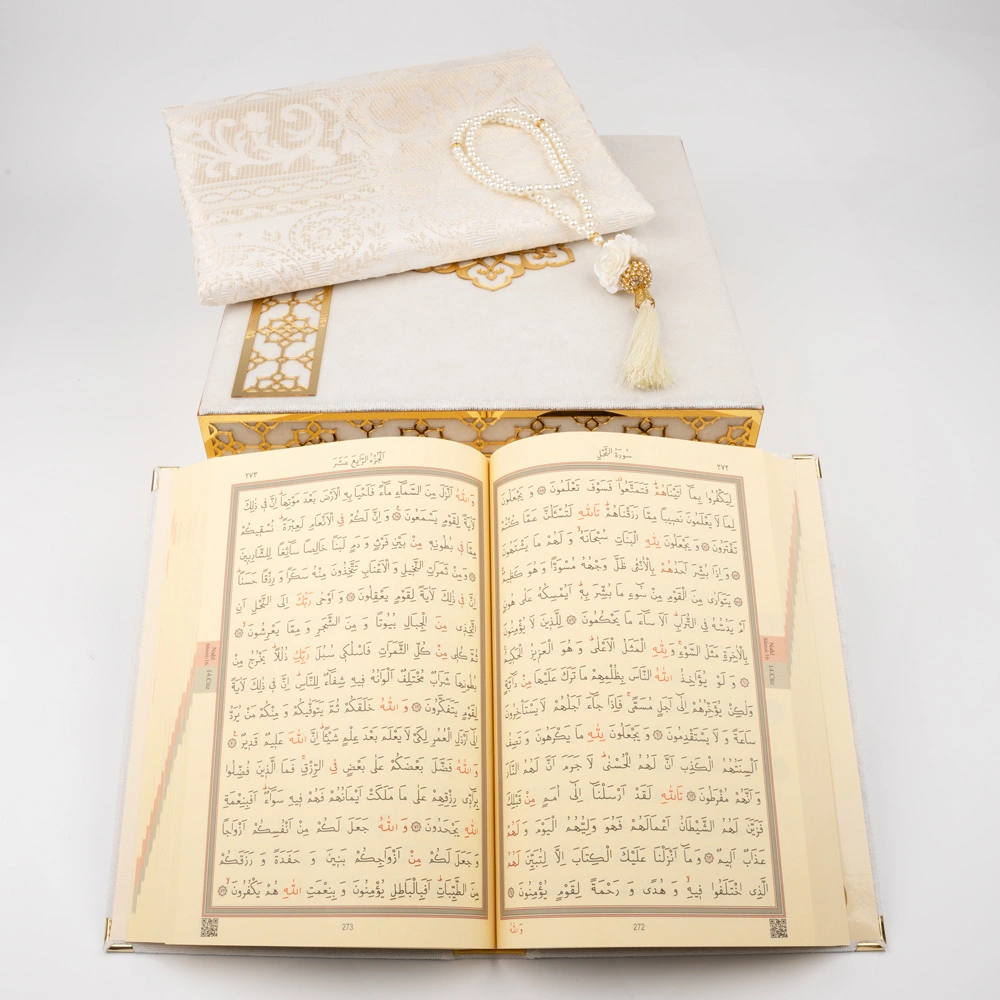 ٢٧٢
سُورَةُ النَّحْلِ
لِيَكْفُرُوا بِمَٓا اٰتَيْنَاهُمْۜ فَتَمَتَّعُوا۠ فَسَوْفَ تَعْلَمُونَ ۞ وَ يَجْعَلُونَ
لِمَا لَا يَعْلَمُونَ نَصِيبًا مِمَّا رَزَقْنَاهُمْۜ تَاللّٰهِ لَتُسْـَٔلُنَّ عَمَّا كُنْتُمْ
تَفْتَرُونَ ۞ وَ يَجْعَلُونَ لِلّٰهِ الْبَنَاتِ سُبْحَانَهُۙ وَ لَهُمْ مَا يَشْتَهُونَ
۞ وَ اِذَا بُشِّرَ اَحَدُهُمْ بِالْاُنْثٰى ظَلَّ وَجْهُهُ مُسْوَدًّا وَ هُوَ كَظِيمٌۚ
۞ يَتَوَارٰى مِنَ الْقَوْمِ مِنْ سُٓوءِ مَا بُشِّرَ بِهٖۜ اَيُمْسِكُهُ عَلٰى هُونٍ
اَمْ يَدُسُّهُ فِي التُّرَابِۜ اَلَا سَٓاءَ مَا يَحْكُمُونَ ۞ لِلَّذِينَ لَا يُؤْمِنُونَ
بِالْاٰخِرَةِ مَثَلُ السَّوْءِۚ وَ لِلّٰهِ الْمَثَلُ الْاَعْلٰىۜ وَ هُوَ الْعَزِيزُ الْحَكِيمُ
۞ وَ لَوْ يُؤَاخِذُ اللّٰهُ النَّاسَ بِظُلْمِهِمْ مَا تَرَكَ عَلَيْهَا مِنْ دَٓابَّةٍ
وَلٰكِنْ يُؤَخِّرُهُمْ اِلٰٓى اَجَلٍ مُسَمًّىۚ فَاِذَا جَٓاءَ اَجَلُهُمْ لَا يَسْتَأْخِرُونَ
سَاعَةً وَ لَا يَسْتَقْدِمُونَ ۞ وَ يَجْعَلُونَ لِلّٰهِ مَا يَكْرَهُونَ وَ تَصِفُ
اَلْسِنَتُهُمُ الْكَذِبَ اَنَّ لَهُمُ الْحُسْنٰىۜ لَا جَرَمَ اَنَّ لَهُمُ النَّارَ
وَ اَنَّهُمْ مُفْرَطُونَ ۞ تَاللّٰهِ لَقَدْ اَرْسَلْنَٓا اِلٰٓى اُمَمٍ مِنْ قَبْلِكَ
فَزَيَّنَ لَهُمُ الشَّيْطَانُ اَعْمَالَهُمْ فَهُوَ وَلِيُّهُمُ الْيَوْمَ وَ لَهُمْ
عَذَابٌ اَلِيمٌ ۞ وَ مَٓا اَنْزَلْنَا عَلَيْكَ الْكِتَابَ اِلَّا لِتُبَيِّنَ لَهُمُ
الَّذِي اخْتَلَفُوا فِيهِۙ وَ هُدًى وَ رَحْمَةً لِقَوْمٍ يُؤْمِنُونَ ۞
وَاللّٰهُ
272
٢٧٣
اَلْجُزْءُ الرَّابِعَ عَشَرَ
وَ اللّٰهُ اَنْزَلَ مِنَ السَّمَٓاءِ مَٓاءً فَاَحْيَا بِهِ الْاَرْضَ بَعْدَ مَوْتِهَاۜ اِنَّ فِي ذٰلِكَ
لَاٰيَةً لِقَوْمٍ يَسْمَعُونَ ۞ وَ اِنَّ لَكُمْ فِي الْاَنْعَامِ لَعِبْرَةًۜ نُسْقِيكُمْ
مِمَّا فِي بُطُونِهٖ مِنْ بَيْنِ فَرْثٍ وَ دَمٍ لَبَنًا خَالِصًا سَٓائِغًا لِلشَّارِبِينَ
۞ وَ مِنْ ثَمَرَاتِ النَّخِيلِ وَ الْاَعْنَابِ تَتَّخِذُونَ مِنْهُ سَكَرًا وَ رِزْقًا حَسَنًاۜ
اِنَّ فِي ذٰلِكَ لَاٰيَةً لِقَوْمٍ يَعْقِلُونَ ۞ وَ اَوْحٰى رَبُّكَ اِلَى النَّحْلِ اَنِ
اتَّخِذِي مِنَ الْجِبَالِ بُيُوتًا وَ مِنَ الشَّجَرِ وَ مِمَّا يَعْرِشُونَۙ ۞
ثُمَّ كُلِي مِنْ كُلِّ الثَّمَرَاتِ فَاسْلُكِي سُبُلَ رَبِّكِ ذُلُلًاۜ يَخْرُجُ مِنْ
بُطُونِهَا شَرَابٌ مُخْتَلِفٌ اَلْوَانُهُ فِيهِ شِفَٓاءٌ لِلنَّاسِۜ اِنَّ فِي ذٰلِكَ لَاٰيَةً
لِقَوْمٍ يَتَفَكَّرُونَ ۞ وَ اللّٰهُ خَلَقَكُمْ ثُمَّ يَتَوَفّٰيكُمْ وَ مِنْكُمْ مَنْ يُرَدُّ
اِلٰٓى اَرْذَلِ الْعُمُرِ لِكَيْ لَا يَعْلَمَ بَعْدَ عِلْمٍ شَيْـًٔاۜ اِنَّ اللّٰهَ عَلِيمٌ قَدِيرٌ ۞
وَ اللّٰهُ فَضَّلَ بَعْضَكُمْ عَلٰى بَعْضٍ فِي الرِّزْقِۚ فَمَا الَّذِينَ فُضِّلُوا
بِرَٓادِّي رِزْقِهِمْ عَلٰى مَا مَلَكَتْ اَيْمَانُهُمْ فَهُمْ فِيهِ سَوَٓاءٌۜ اَفَبِنِعْمَةِ
اللّٰهِ يَجْحَدُونَ ۞ وَ اللّٰهُ جَعَلَ لَكُمْ مِنْ اَنْفُسِكُمْ اَزْوَاجًا
وَ جَعَلَ لَكُمْ مِنْ اَزْوَاجِكُمْ بَنِينَ وَ حَفَدَةً وَ رَزَقَكُمْ
مِنَ الطَّيِّبَاتِۜ اَفَبِالْبَاطِلِ يُؤْمِنُونَ وَ بِنِعْمَتِ اللّٰهِ هُمْ يَكْفُرُونَۙ ۞
273